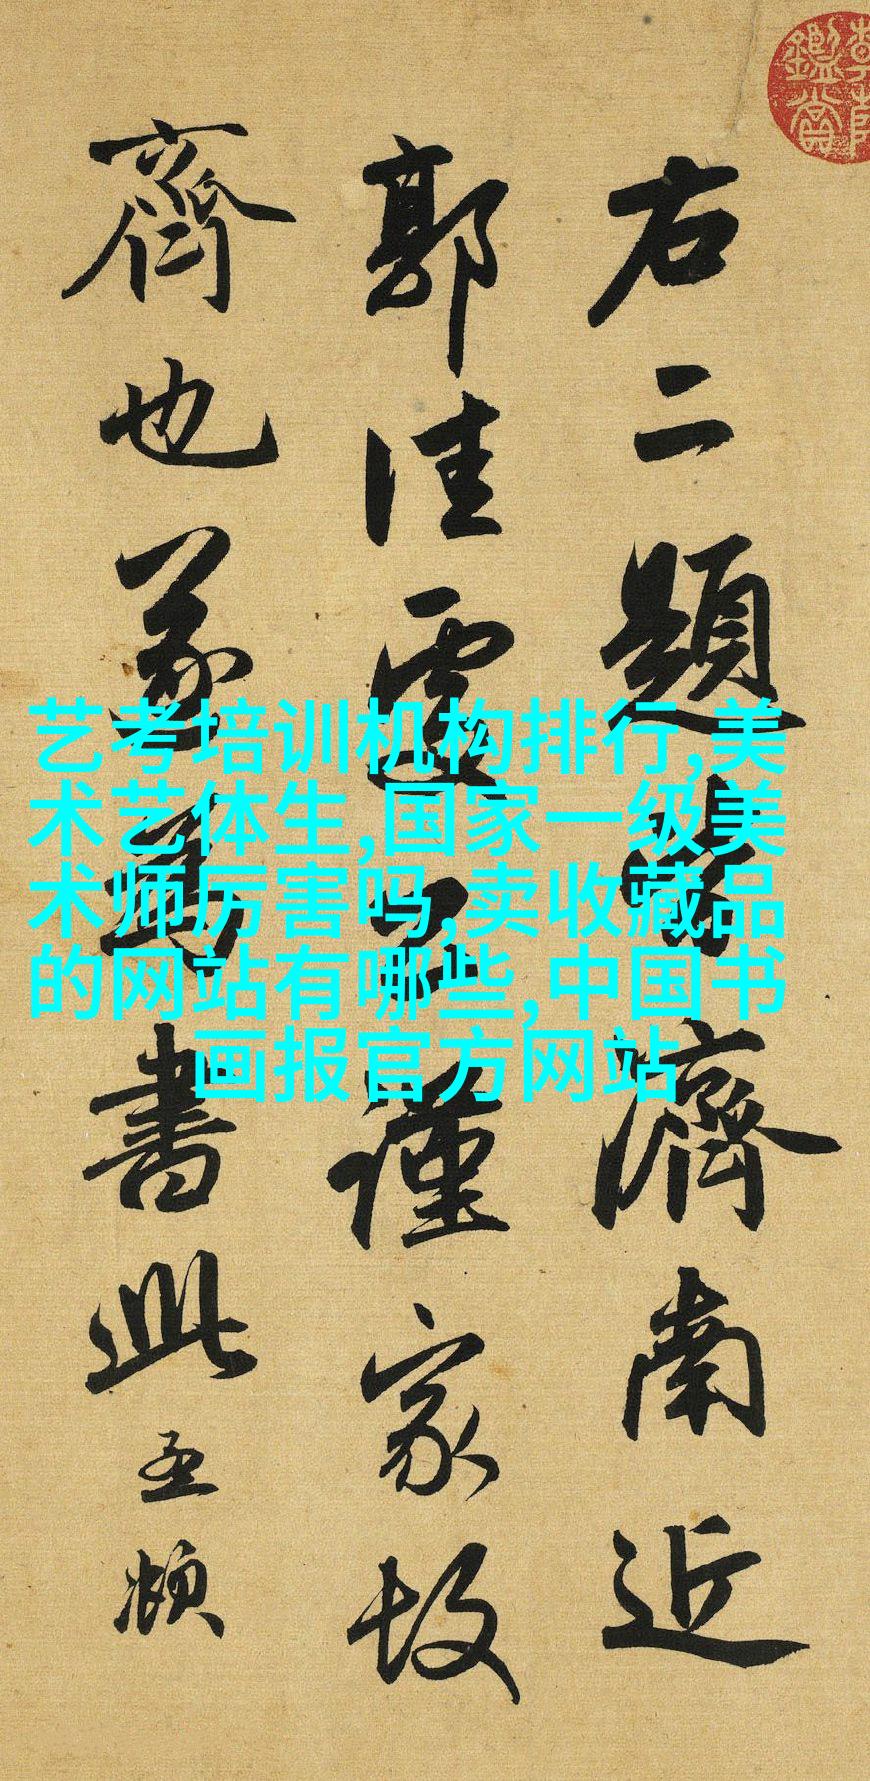 右二題皆濟南近
郭佳處公謹家故
齊也遂為書此孟頫
艺考培训机构排行,美
术艺体生,国家一级美
术师厉害吗,卖收藏品
的网站有哪些,中国书
画报官方网站
鑑賞